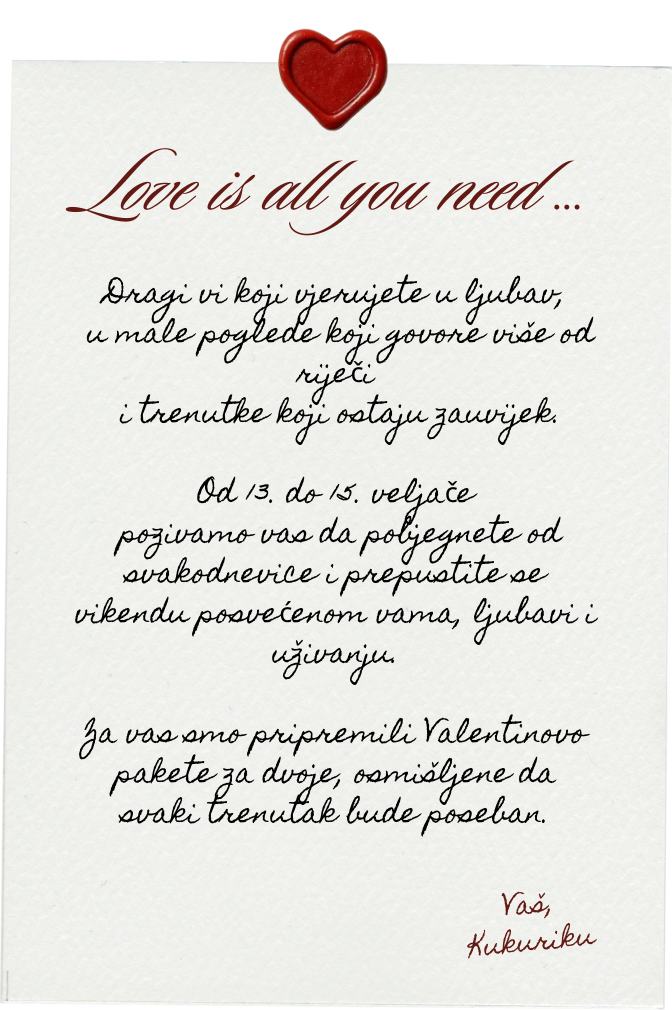 Love is all you need ...
Dragi vi koji vjerujete u ljubav,
u male poglede koji govore više od
riječi
i trenutke koji ostaju zauvijek.
Od 13. do 15. veljače
pozivamo vas da pobjegnete od
svakodnevice i prepustite se
vikendu posvećenom vama, ljubavi i
uživanju.
Za vas smo pripremili Valentinovo
pakete za dvoje, osmišljene da
svaki trenutak bude poseban.
Vaš,
Kukuriku